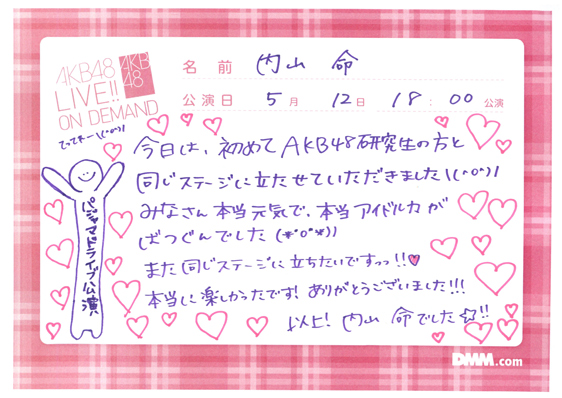 AKB48
LIVE!!
ON DEMAND
AKB
48
名前 内山 命
公演日 5月 12日 18:00 公演
てってれー\(^o^)/
パジャマドライブ公演
今日は、初めてAKB48研究生の方と
同じステージに立たせていただきました\(^o^)/
みなさん本当元気で、本当アイドル力が
ばつぐんでした(*°o°*))
また同じステージに立ちたいですっっ!!♥
本当に楽しかったです!ありがとうございました!!!
以上!内山 命でした☆!!
DMM.com